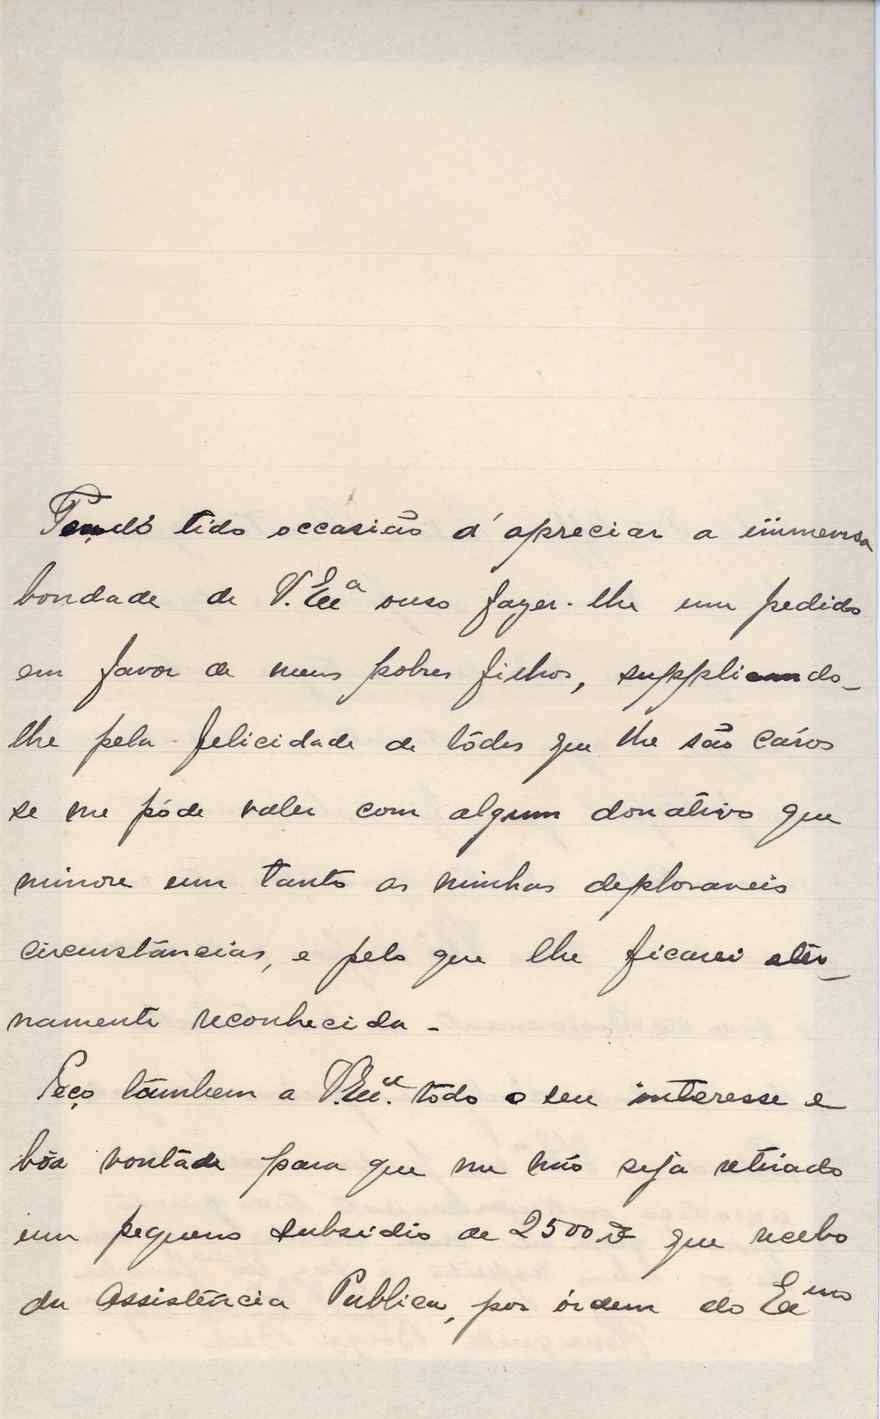 Tendo tido occasião d'apreciar a immensa
bondade de V. Exª ouso fazer-lhe um pedido
em favor de meus pobres filhos, supplicando-
lhe pela felicidade de tôdos que lhe são cáros
se me póde valer com algum donativo que
minore um tanto as minhas deploraveis
circumstâncias, e pelo que lhe ficarei eter-
namente reconhecida.
Peço tâmbem a V. Exª. todo o seu interesse e
bôa vontade para que me não seja retirado
um pequeno subsidio de 2500 rs que recebo
da Assistência Publica, por órdem do Exmo